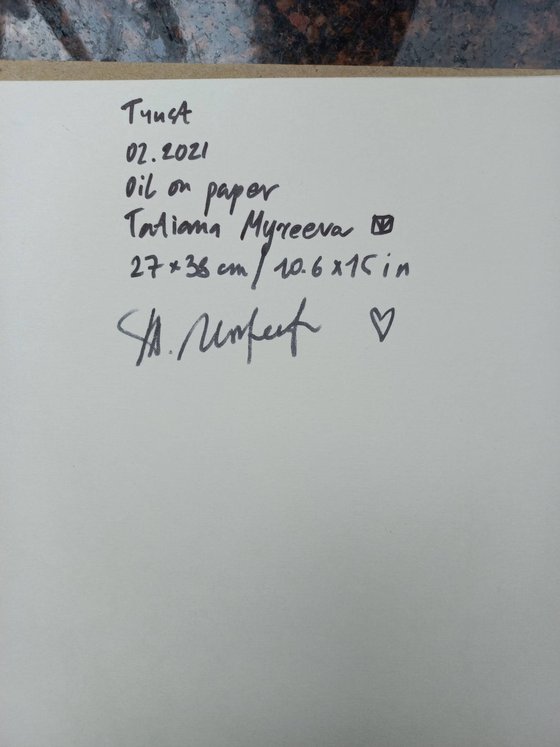 Trust
02.2021
Oil on paper
Tatiana Myreeva
27×38 cm / 10.6 x 15 in